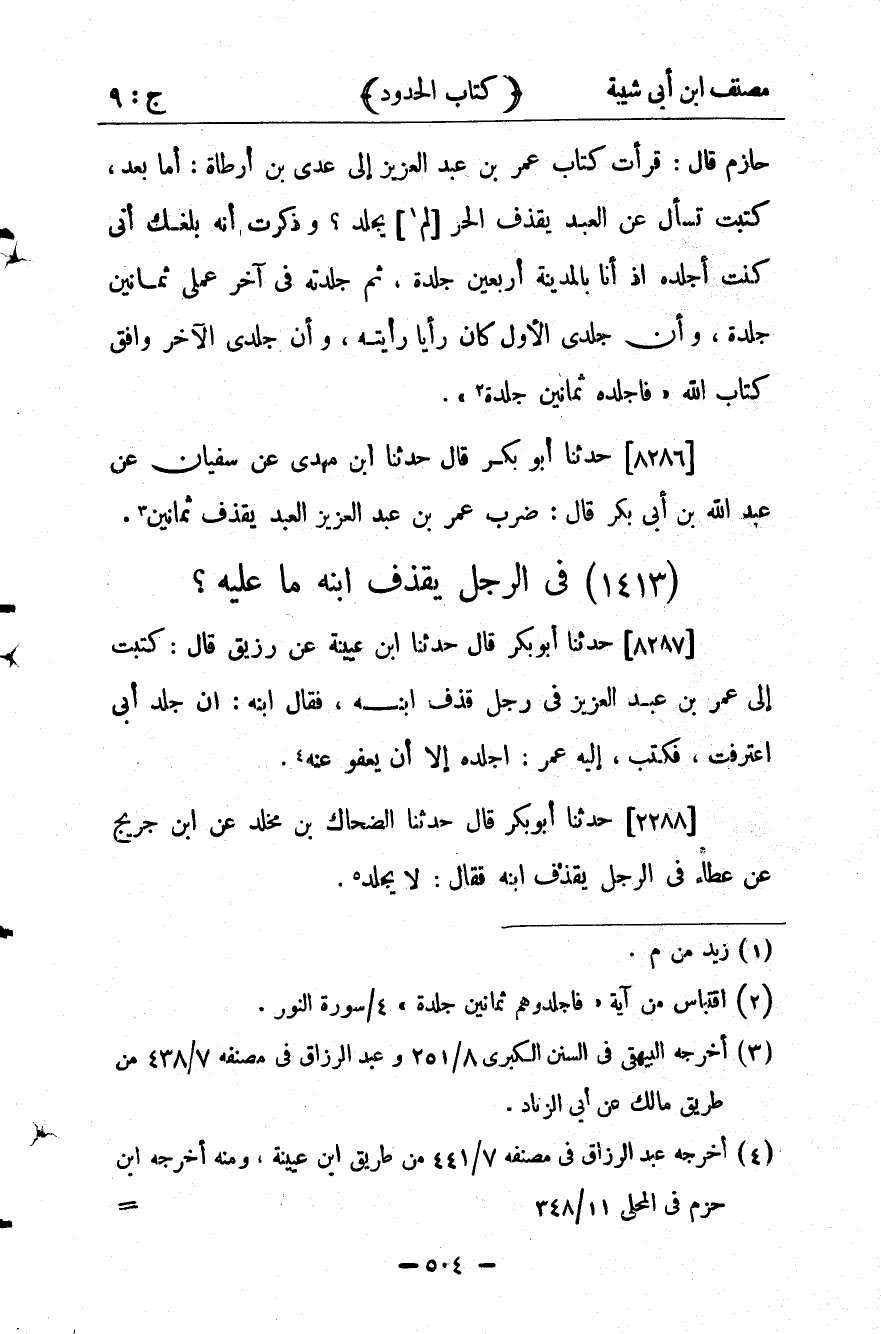 مصنف ابن أبى شيبة ﴿ كتاب الحدود ﴾ ج : ٩
حازم قال : قرأت كتاب عمر بن عبد العزيز إلى عدى بن أرطاة : أما بعد ،
كتبت تسأل عن العبد يقذف الحر [لم١] يجلد ؟ و ذكرت أنه بلغك أنى
كنت أجلده اذ أنا بالمدينة أربعين جلدة ، ثم جلدته فى آخر عملى ثمانين
جلدة ، و أن جلدى الأول كان رأيا رأيته ، و أن جلدى الآخر وافق
كتاب الله « فاجلده ثمانين جلدة٢ » .
[٨٢٨٦] حدثنا أبو بكر قال حدثنا ابن مهدى عن سفيان عن
عبد الله بن أبى بكر قال : ضرب عمر بن عبد العزيز العبد يقذف ثمانين٣ .
(١٤١٣) فى الرجل يقذف ابنه ما عليه ؟
[٨٢٨٧] حدثنا أبوبكر قال حدثنا ابن عيينة عن رزيق قال : كتبت
إلى عمر بن عبد العزيز فى رجل قذف ابنه ، فقال ابنه : ان جلد أبى
اعترفت ، فكتب ، إليه عمر : اجلده إلا أن يعفو عنه٤ .
[٢٢٨٨] حدثنا أبوبكر قال حدثنا الضحاك بن مخلد عن ابن جريج
عن عطاء فى الرجل يقذف ابنه فقال : لا يجلد٥ .
(١) زيد من م .
(٢) اقتباس من آية « فاجلدوهم ثمانين جلدة » ٤/سورة النور .
(٣) أخرجه البيهقى فى السنن الكبرى ٢٥١/٨ و عبد الرزاق فى مصنفه ٤٣٨/٧ من
طريق مالك عن أبي الزناد .
(٤) أخرجه عبد الرزاق فى مصنفه ٤٤١/٧ من طريق ابن عيينة ، ومنه أخرجه ابن
حزم فى المحلى ٣٤٨/١١ =
– ٥٠٤ –